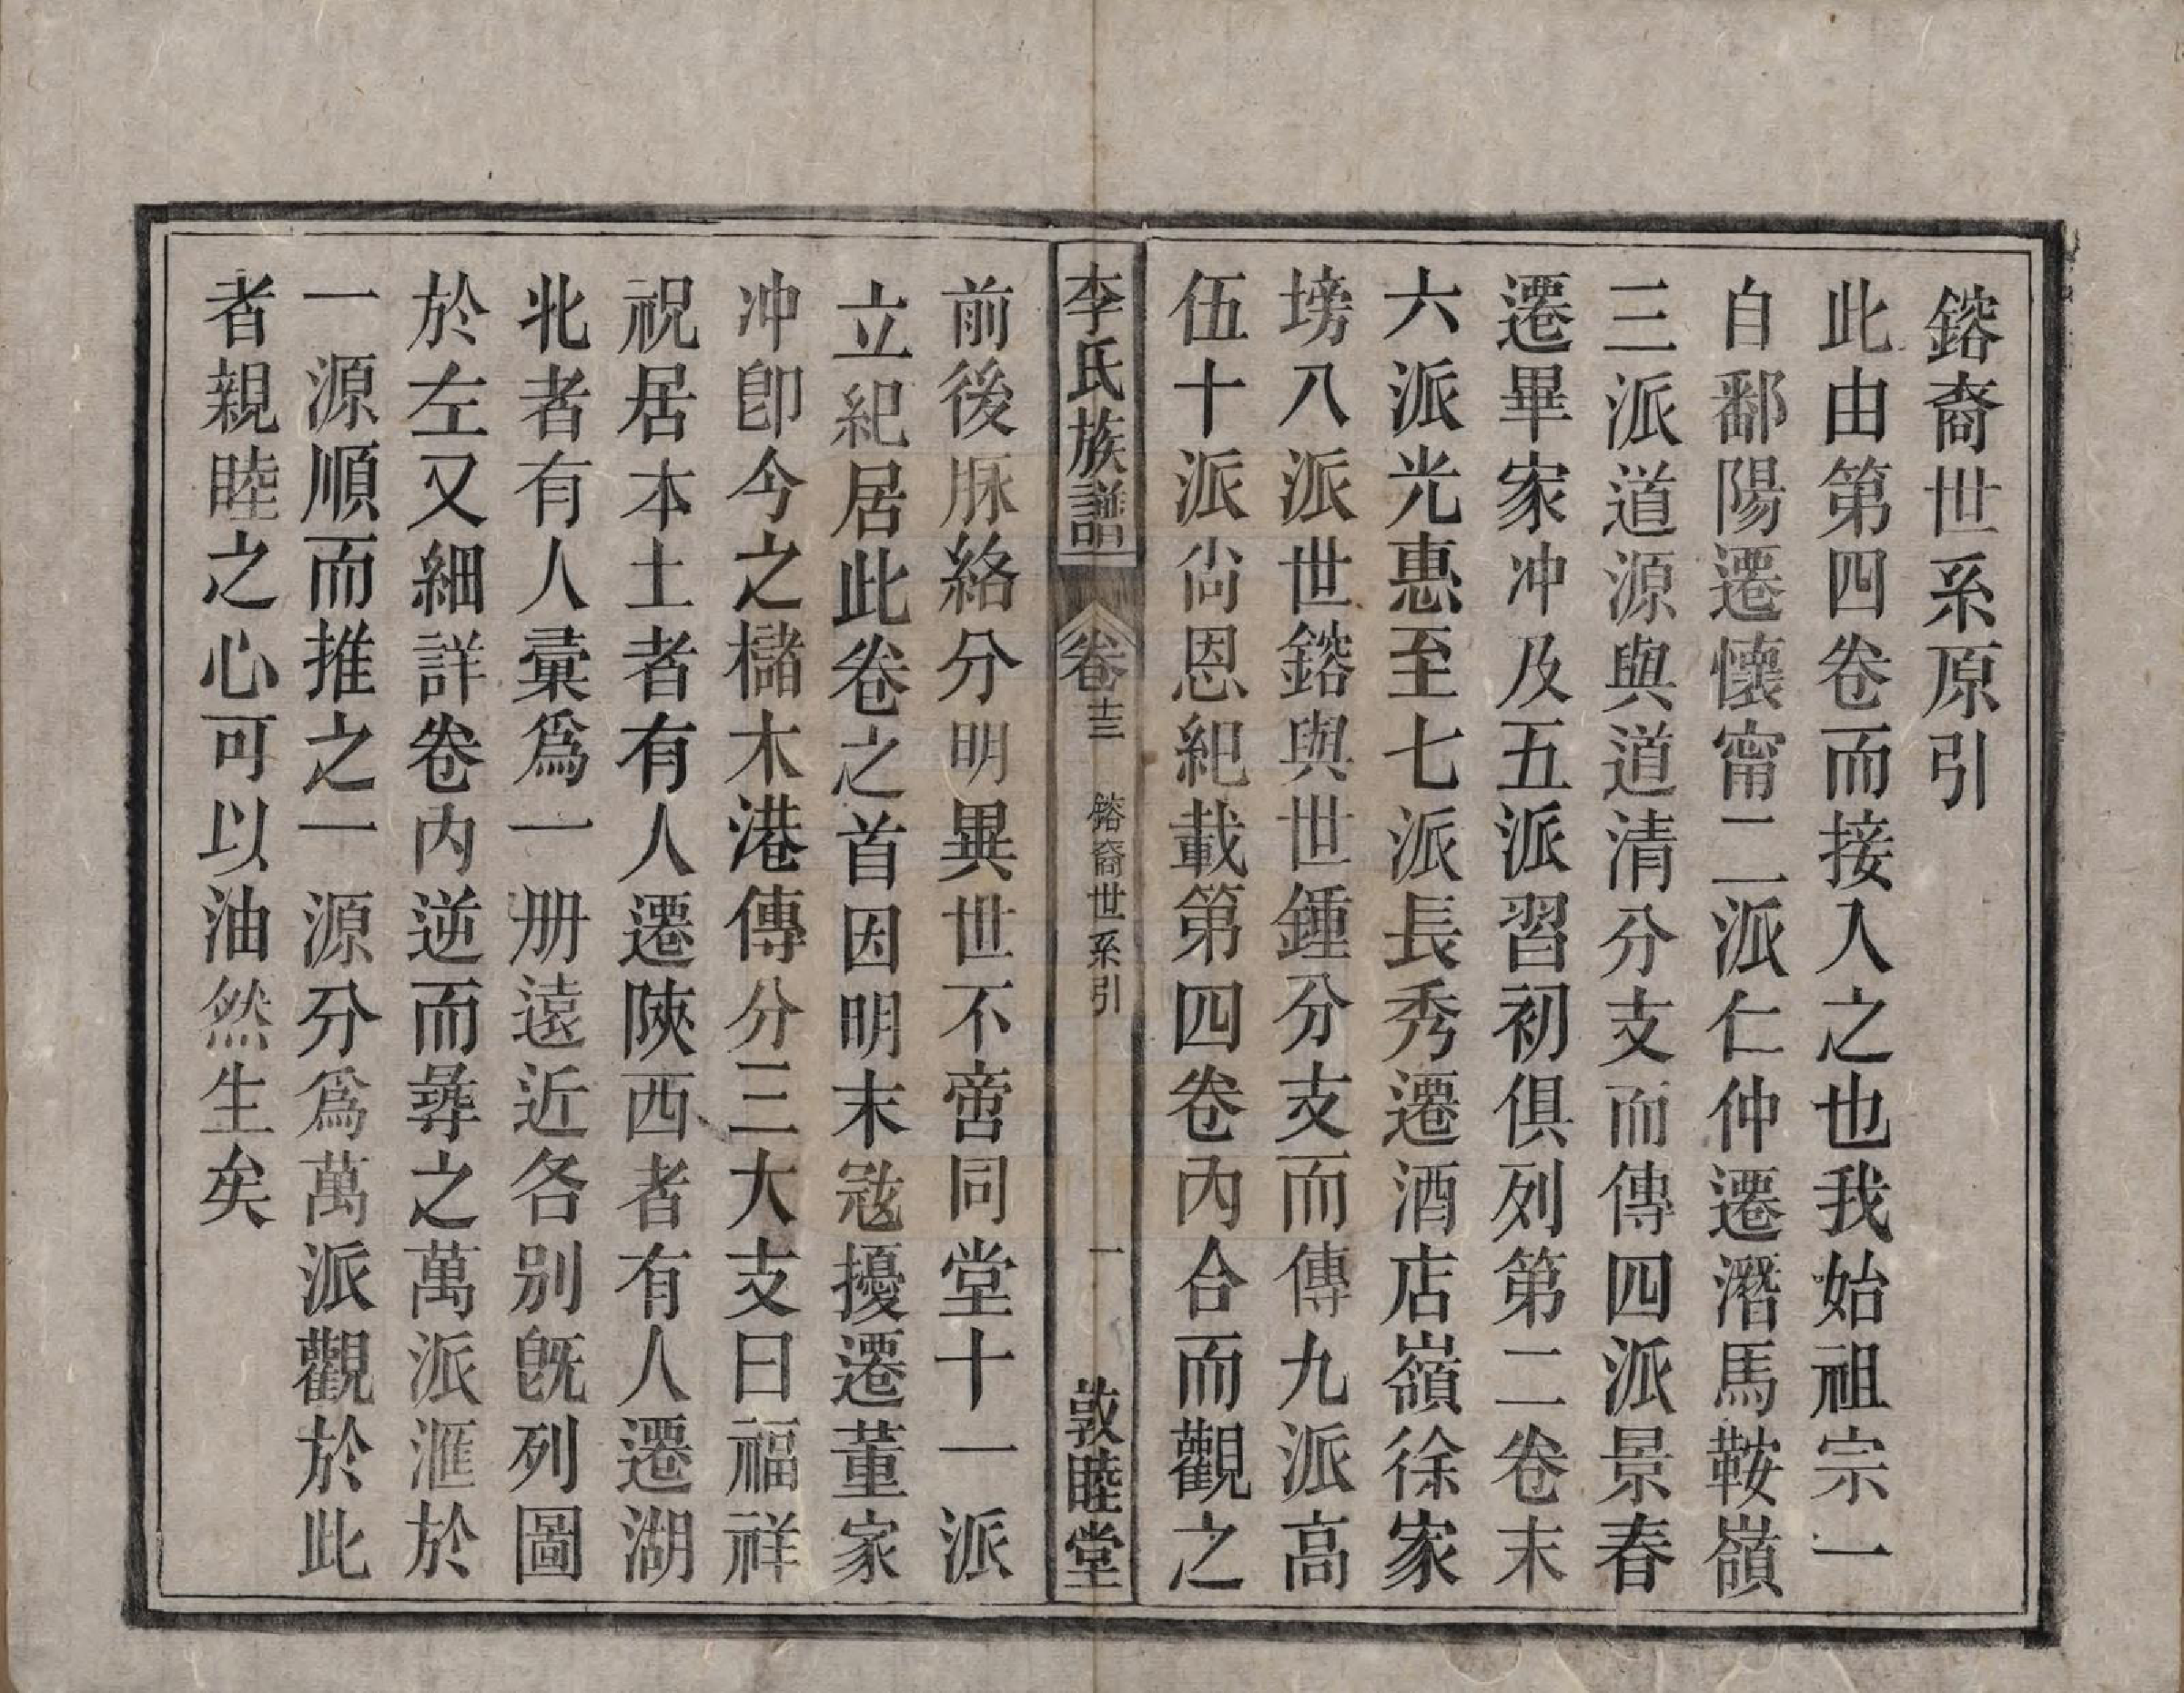 鎔裔世系原引
此由第四卷而接入之也我始祖宗一
自鄱陽遷懷甯二派仁仲遷潛馬鞍嶺
三派道源與道清分支而傳四派景春
遷畢家冲及五派習初俱列第二卷末
六派光惠至七派長秀遷酒店嶺徐家
塝八派世鎔與世鍾分支而傳九派高
伍十派尙恩紀載第四卷內合而觀之
李氏族譜
卷十三
鎔裔世系引
一
敦睦堂
前後脉絡分明異世不啻同堂十一派
立紀居此卷之首因明末宼擾遷董家
冲卽今之櫧木港傳分三大支曰福祥
祝居本土者有人遷陝西者有人遷湖
北者有人彙爲一册遠近各別旣列圖
於左又細詳卷內逆而尋之萬派滙於
一源順而推之一源分爲萬派觀於此
者親睦之心可以油然生矣